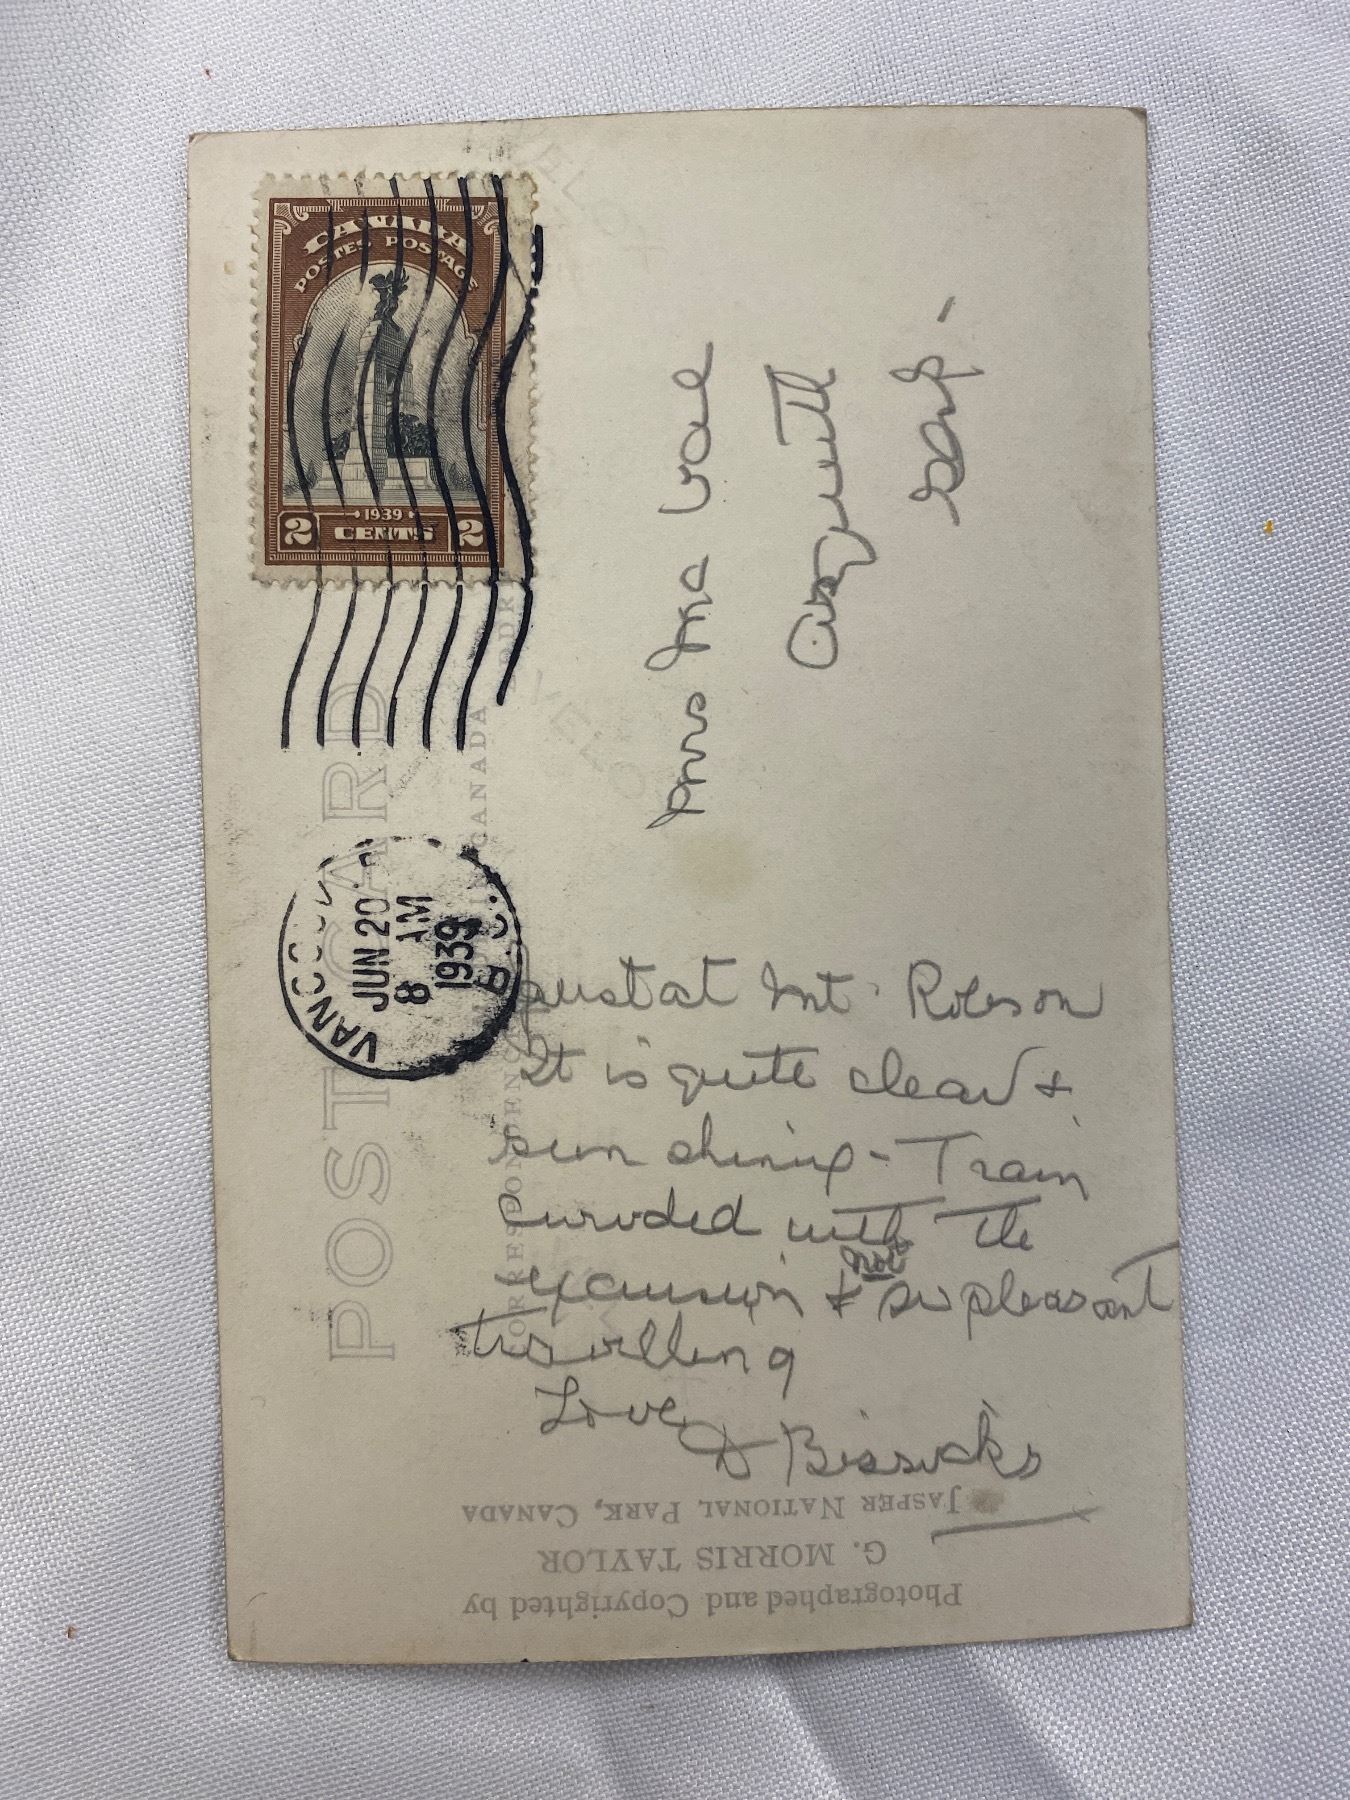 CANADA
POSTES POSTAGE
1939
2 CENTS 2
POST CARD
CANADA
CORRESPONDENCE
VANCOUV
B.C.
JUN 20
8 AM
1939
Mrs Ina Vae
Asquith
Sask-
Just at Mt. Robson
It is quite clear &
sun shining - Train
Crowded with the
not
excursion & so pleasant
travelling
Love
Photographed and Copyrighted by
G. MORRIS TAYLOR
JASPER NATIONAL PARK, CANADA